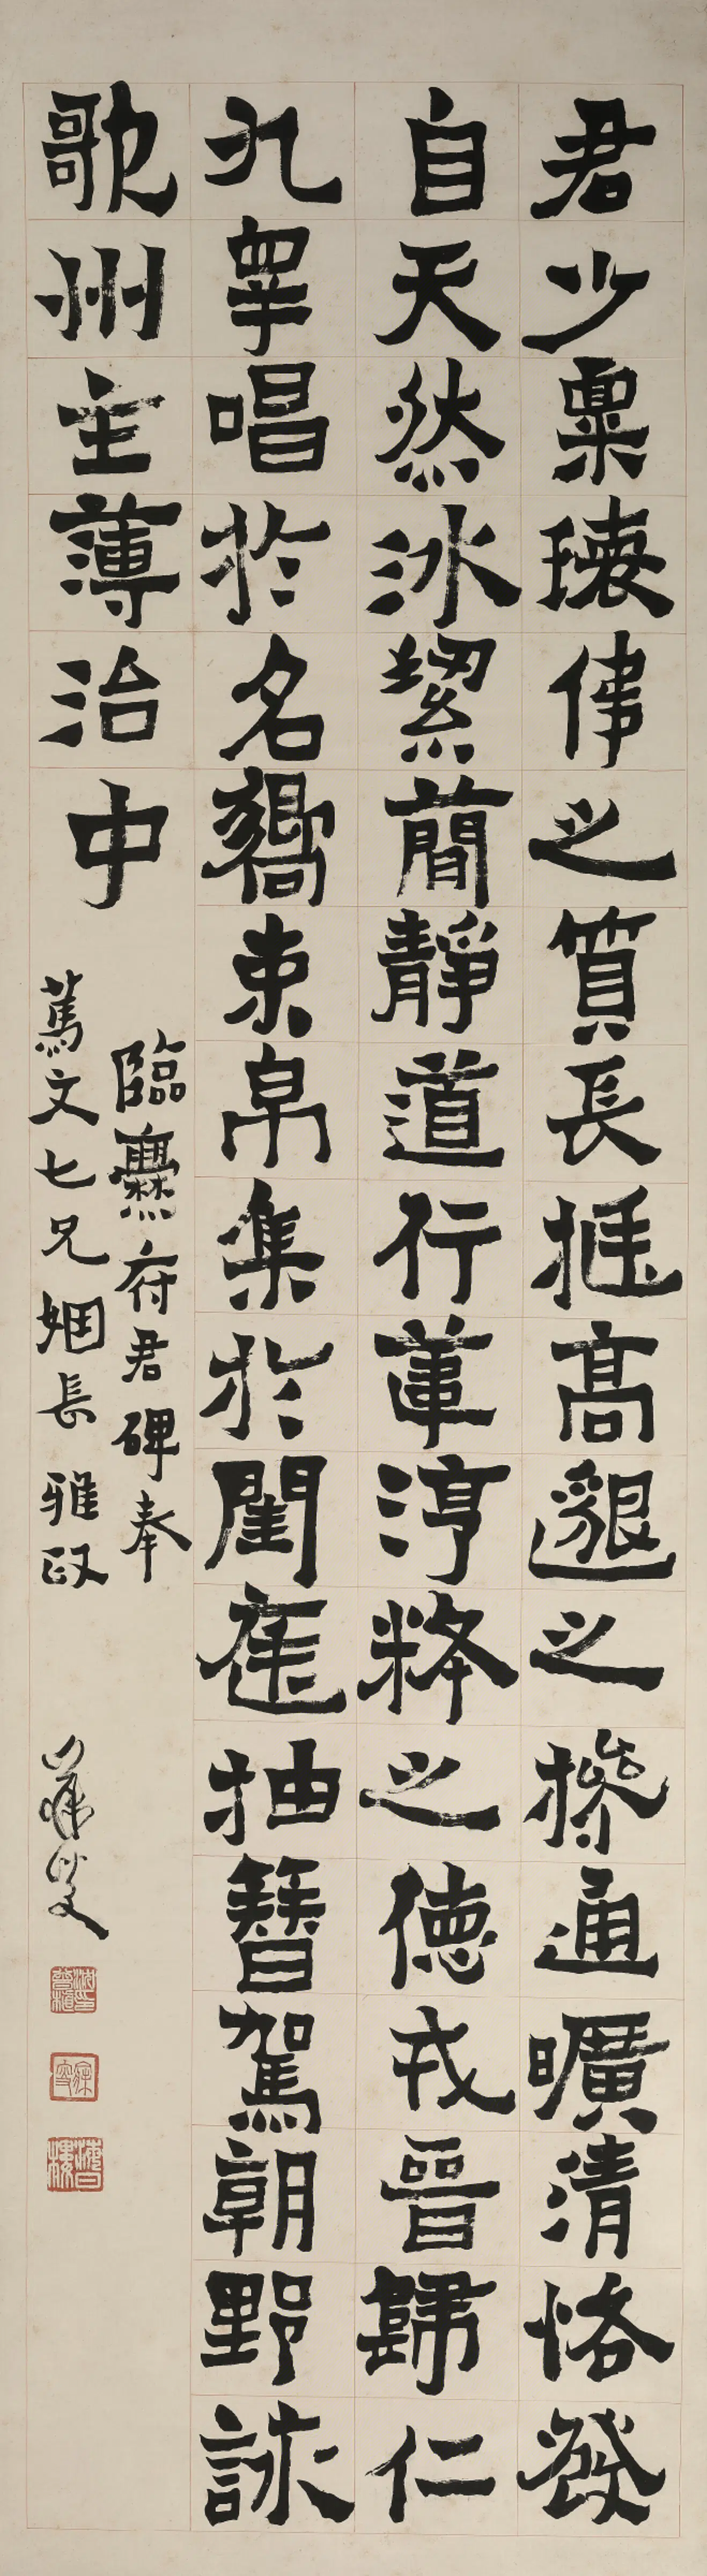 君少稟瓌偉之質長挺高邈之操通曠清恪發
自天然冰絜蕳靜道行葦淳粹之德戎晉歸仁
九皋唱於名嚮束帛集於閨庭抽簪駕朝野詠
歌州主薄治中
臨爨府君碑奉
篤文七兄姻長雅政
寐叟
海日樓